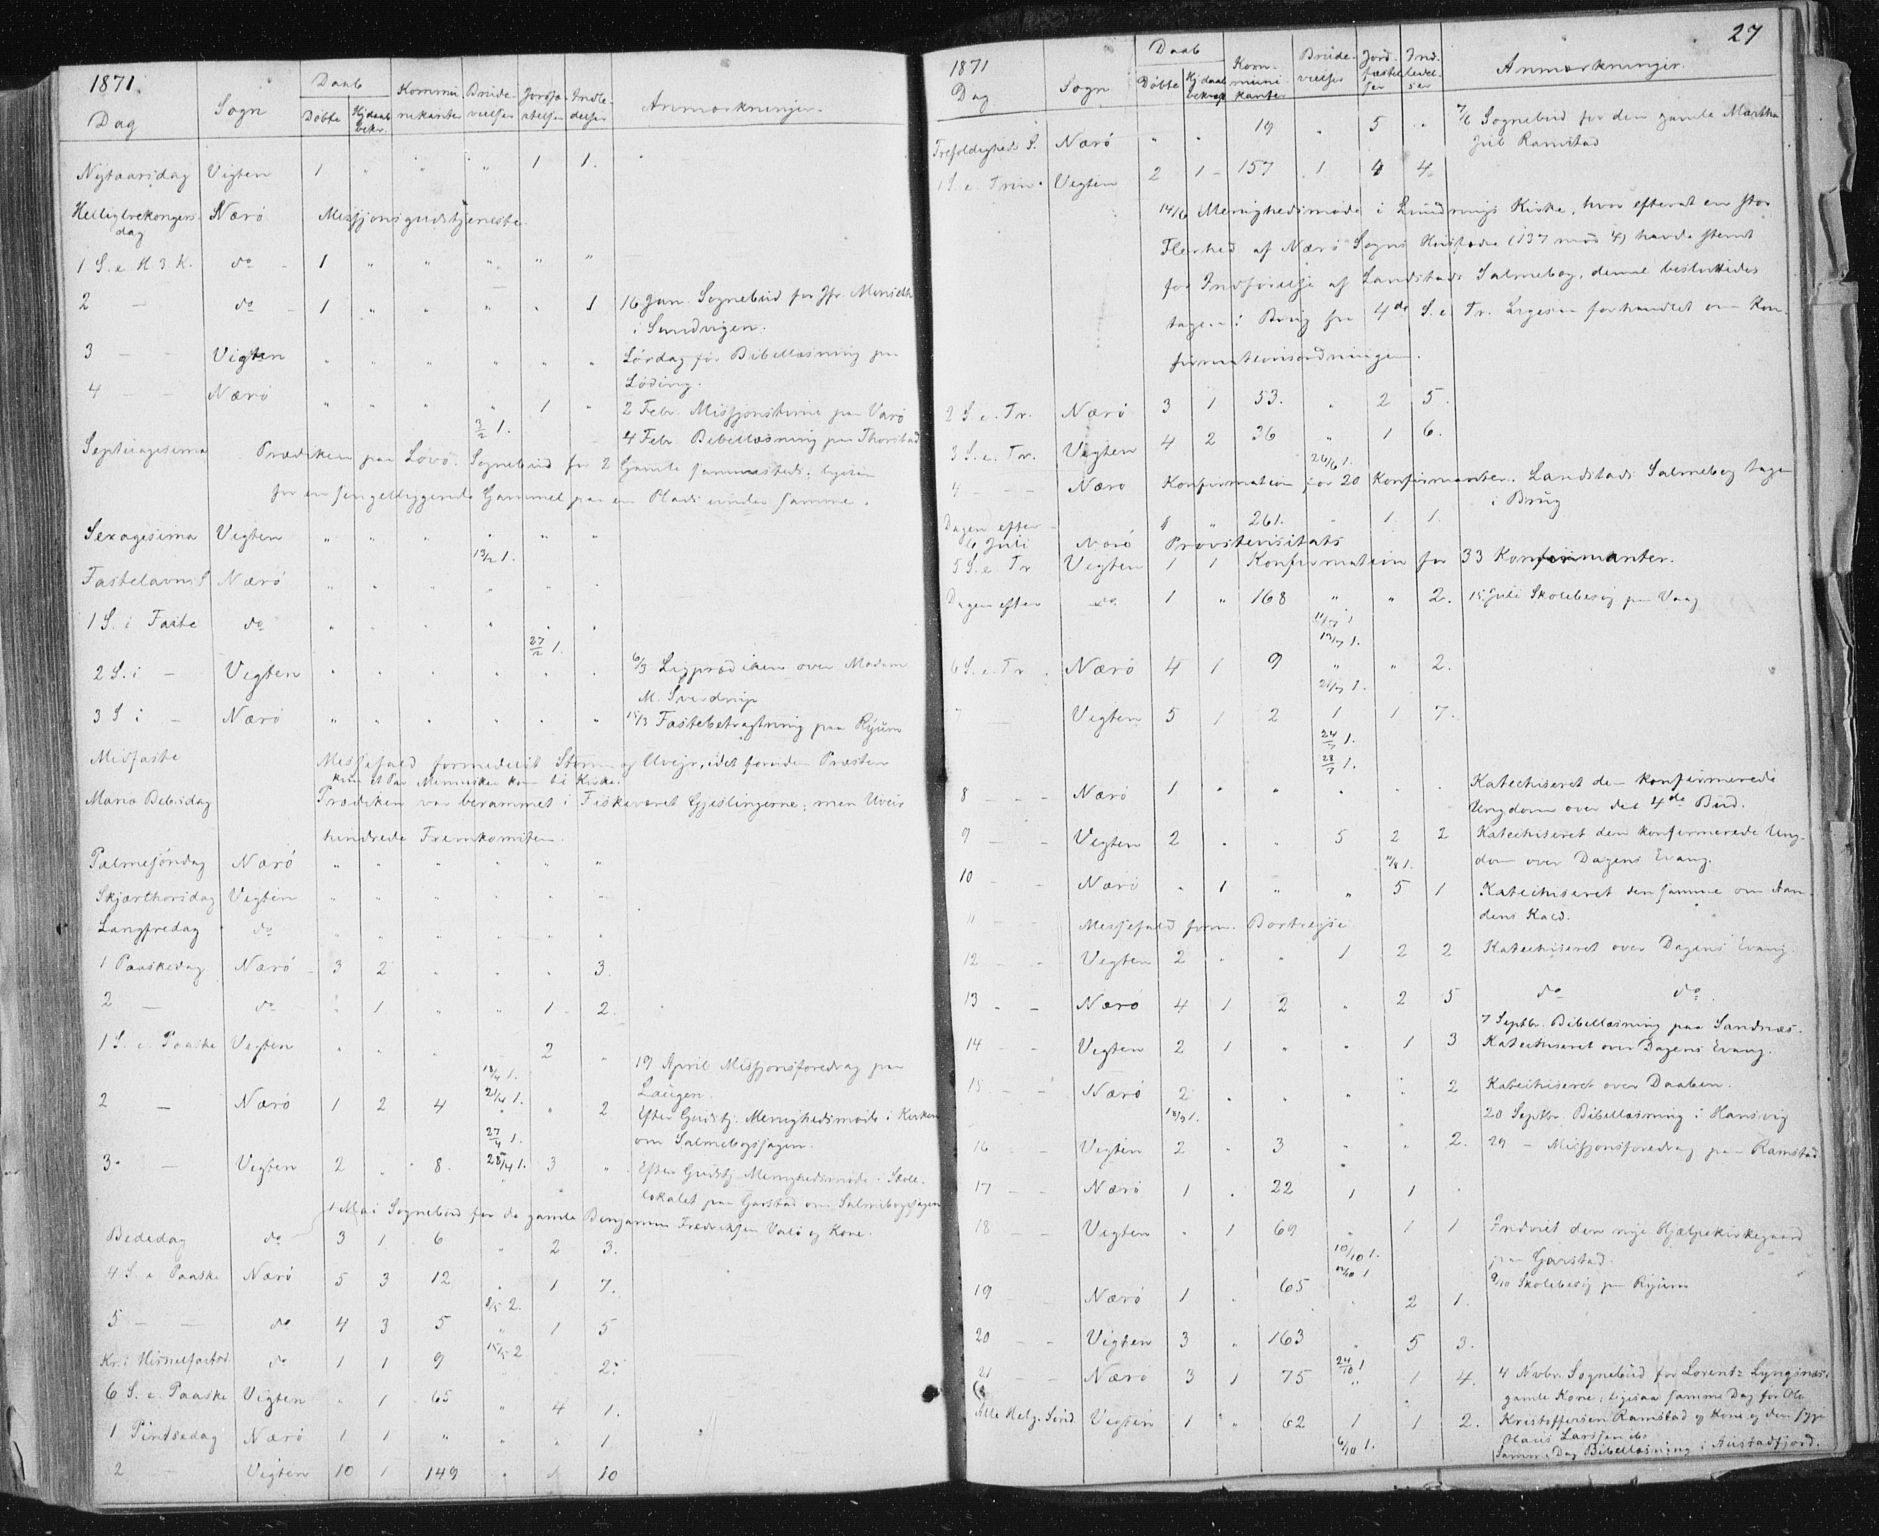 1871.
Dag Sogn Daab Kommunikanter Brudevielser Jordfæstelser Indledelser Anmærkninger.
Døbte Hj.daab bekr.
Nytaarsdag Vigten 1 " " " 1 1.
Helligtrekongersdag Nærö Missjonsgudstjeneste.
1 S. e. H. 3 K. do 1 " " " " "
2 — do 1 " " " " 1 16 Jan. Sognebud for Jfr.
i Sundvigen.
3 — — Vigten " " " " " " Lørdag før Bibellæsning paa
Løding.
4 — — Nærö " " " " 1 " 2 Febr. Missjonstime paa Varö
3/2 1. 4 Febr. Bibellæsning paa Thorstad
Septuagesima Prædiken paa Lövö. Sognebud for 2 Gamle sammesteds; ligesaa
for en sengeliggende Gammel paa en Plads under samme.
Sexagesima Vigten " " " " " "
13/2 1.
Fastelavns S. Nærö " " " " " "
1 S. i Faste do " " " " " "
27/2 1.
2 S. i — Vigten " " " " " " 6/3 Ligprædiken over Madam
M. Sverdrup
3 S i — Nærö " " " " " " 15/3 Fastebetragtning paa Ryum
Midfaste Messefald formedelst Storm og Uveir, idet foruden Præsten
kun et Par Mennesker kom til Kirke.
Maria Bebs.dag Prædiken var berammet i Fiskeværet Gjeslingerne; men Uveir
hindrede Fremkomsten.
Palmesöndag Nærö " " " " " "
Skjærthorsdag Vigten " " " " " "
Langfredag do " " " " " "
1 Paaskedag Nærö 3 2 " " " 3.
2 — do " 1 " " 1 2.
1 S. e. Paaske Vigten " " " " 2 "
18/4 1. 19 April Missjonsforedrag paa
Laugen.
2 — Nærö 1 2 4 21/4 1. " 2 Efter Gudstj. Menighedsmöde i Kirken
27/4 1. om Salmebogssagen.
3 — Vigten 2 " 8. 28/4 1. 3 " Efter Gudstj. Menighedsmöde i Skole-
lokalet paa Garstad om Salmebogssagen
1 Mai Sognebud for de gamle Benjamin Fredriksen Valö og Kone.
Bededag do 3 1 6 " 2 3.
4 S. e Paaske Nærö 5 3 12 " 1 7.
8/5 2.
5 — — do 4 3 5 " 1 5
15/5 2
Kr. i Himmelfartsd. do 1 1 9 2.
6 S. e. Paaske Vigten " 1 65 " 4 1.
1 Pintsedag Nærö 1 1 " " " 1
2 — Vigten 10 1 149 " 1 10
27
1871
Dag Sogn Daab Kommunikanter Brudevielser Jordfæstelser Indledelser Anmærkninger.
Døbte Hj.daab bekræf
7/6 Sognebud for den gamle Martha
Trefoldigheds S. Nærö " " 19 " 5 " Ramstad
1 S. e. Trin. Vigten 2 1 157 1 4 4.
14/6 Menighedsmöde i Lundrings Kirke, hvor efterat en stor
Flerhed af Nærö Sogns Husfædre (137 mod 4) havde stemt
for Indförelse af Landstads Salmebog, denne besluttedes
tagen i Brug fra 4de S. e. Tr. Ligesaa forhandlet om Kon-
firmationsordningen.
2 S. e. Tr. Nærö 3 1 53. " 2 5.
3 S. e. Tr. Vigten 4 2 36 " 1 6.
26/6 1.
4 — — Nærö Konfirmation for 20 Konfirmanter. Landstads Salmebog tagen
i Brug
Dagen efter " 261. " 1. 1.
4 Juli Nærö Provstevisitats
5 S. e. Tr Vigten 1 1 Konfirmation for 33 Konfirmanter.
Dagen efter do 1 " 168 " " 2. 15 Juli Skolebesög paa Vaag
6 S. e. Tr. Nærö 4 1 9 " " 2.
" — Vigten 5 1 2 1 1 7.
24/7 1.
28/7 1.
8 — — Nærö 1 " " " " " Katechiseret den konfirmerede
Ungdom over det 4de Bud.
9 — — Vigten 2 " " 5 2 2 Katechiseret den konfirmerede Ung-
dom over Dagens Evang.
10 — — Nærö " 1 " " 5 1 Katechiseret den samme om Aan-
dens Kald.
11 — — Messefald form. Bortreise
12 — — Vigten 2 " " 1 2 2 Katechiseret over Dagens Evang.
13 — — Nærö 4 1 2 " 2 5 do do
7 Septbr. Bibellæsning paa Sandnæs.
14 — — Vigten 2 1 " " 1 3 Katechiseret over Dagens Evang.
15 — — Nærö 2 " " " " 2 Katechiseret over Daaben.
18/9 1. 20 Septbr. Bibellæsning i Hansvig
16 — — Vigten 2 " 3 " " 2. 29 — Missjonsforedrag paa Ramstad
17 — — Nærö 1 " 22 1 1
18 — — Vigten " 1 69 " 1 1 Indviet den nye Hjælpekirkegaard
10/10 1. paa Garstad.
9/10 Skolebesög paa Ryum
19 — — Nærö 1 " 65 " 2 1.
20 — — Vigten 3 " 163 " 5 3.
24/10 1
21 — — Nærö 3 1 75 " 1 4. 4 Novbr. Sognebud for Lorentz Lyngsnæs's
gamle Kone; ligesaa samme Dag for Ole
Alle Helg. Sönd. Vigten 1 " 62 1 1 2. Kristoffersen Ramstad og Kone og den syge
6/10 1. Olaus Larssen ibd.
Samme Dag Bibellæsning i Austadfjord.